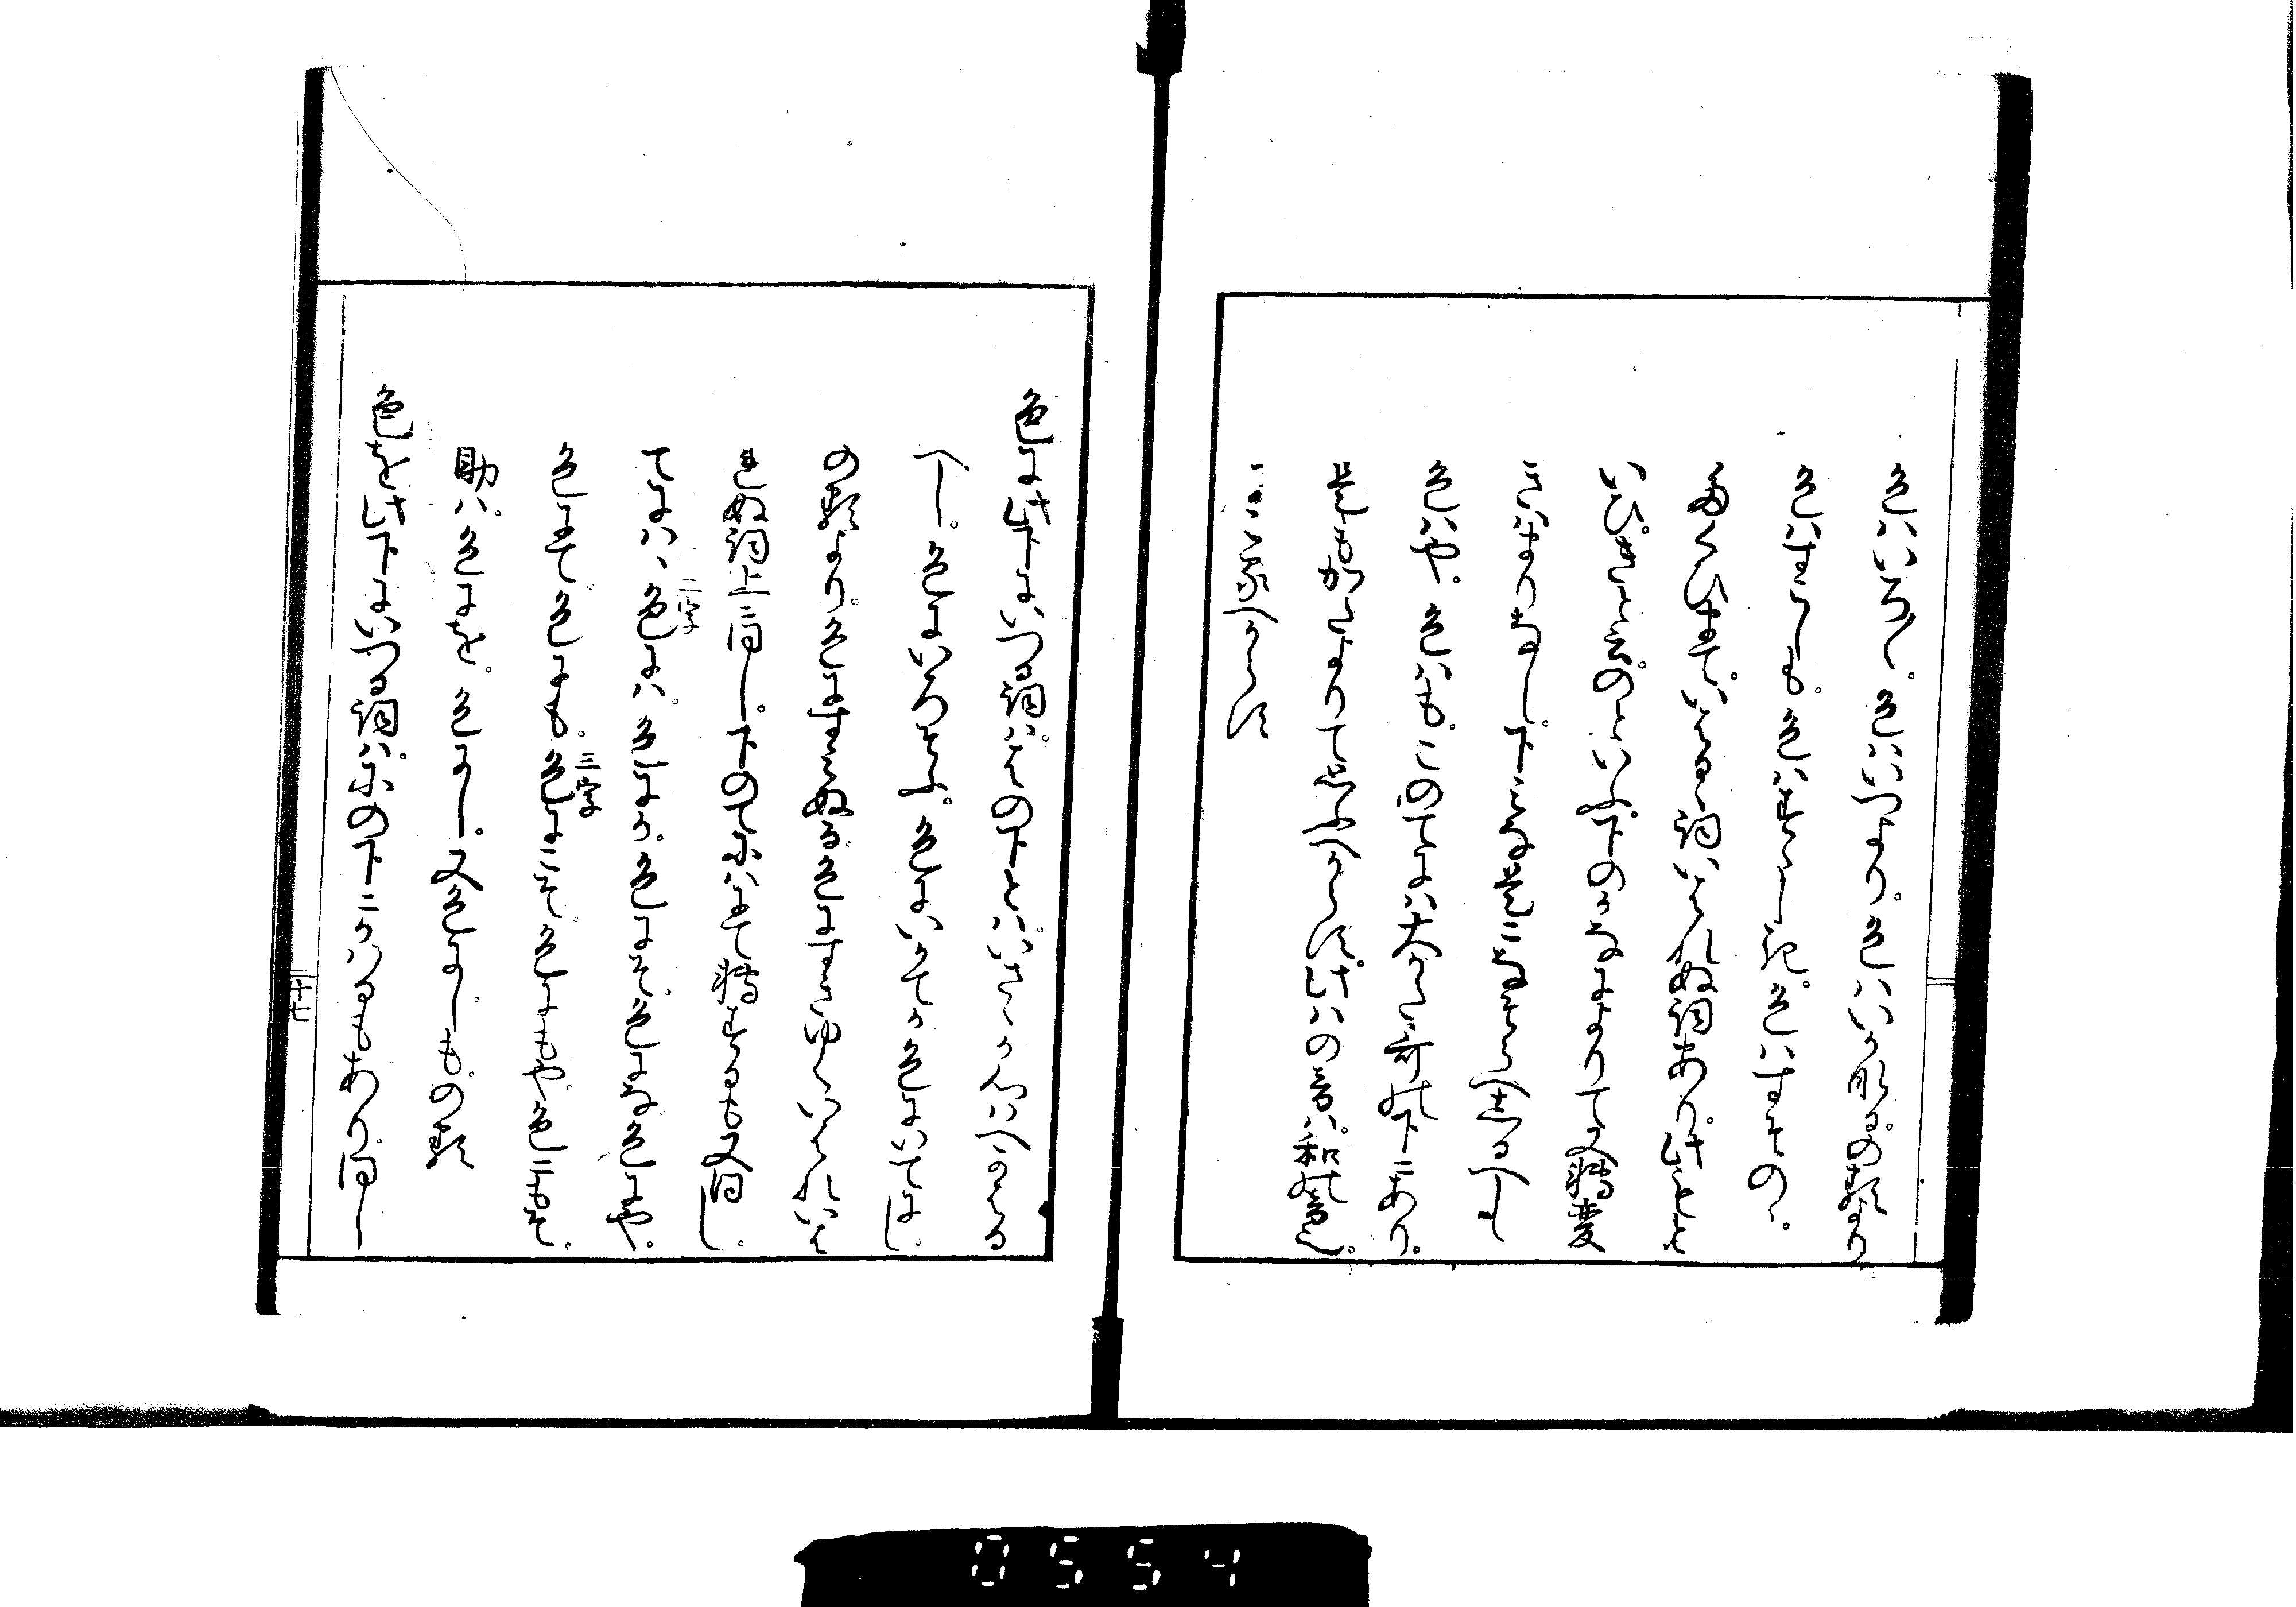 色ハいろ〳〵。色ハいつより。色ハいか斗。の類なり
色ハすこしも。色ハすくし。色ハすその。
たくひまて。いはる詞いはれぬ詞あり。此こと
いひ。きと云。のといふ。下のかなによりて又轉変
きハまりなし。下ミな是になそらへしるへし
色ハや。色ハも。このてにハ大かた哥の下にあり。
是もかたよりて思ふへからす。此ハの音ハ。和の音也。
こころへからす
色に此下にいつる詞ハ。はの下とハいさゝか心ハへかはる
へし。色にいろそふ。色にいかてか色にいてにし。
の類より。色にすみぬる。色にすきゆくいはれいは
れぬ詞上に同し。下のてにハにて轉するも又同し。
てにハ、色にハ。色にか。色にそ。色にな。色にや。
二字
色にて。色にも。色にこそ。色にもや。色にもそ。
三字
助ハ。色にを。色にし。又色にしもの類
色を此下にいつる詞ハ。にの下にかハるもあり。同し
十七
0554